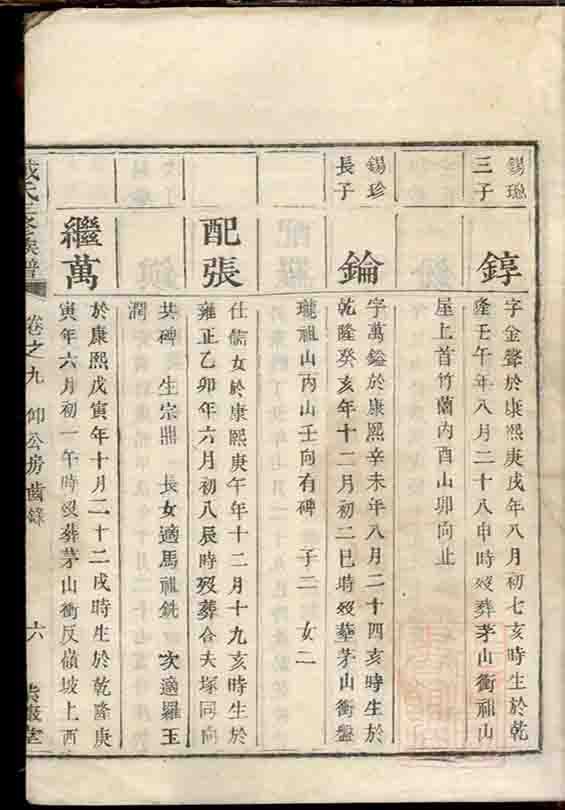 錫璁
三子
錞
字金聲於康熙庚戌年八月初七亥時生於乾
隆壬午年八月二十八申時歿葬茅山衝祖山
屋上首竹蘭內酉山卯向止
錫珍
長子
錀
字萬鎰於康熙辛未年八月二十四亥時生於
乾隆癸亥年十二月初二巳時歿塟茅山衝盤
瓏祖山丙山壬向有碑 子二 女二
配張
仕儒女於康熙庚午年十二月十九亥時生於
雍正乙卯年六月初八辰時歿葬合夫塚同向
共碑 生宗鼎 長女適馬祖銑 次適羅玉
潤
繼萬
於康熙戊寅年十月二十二戌時生於乾隆庚
寅年六月初一午時歿葬茅山衝反嶺坡上酉
氏 族譜 卷之九 仰公房齒錄 六